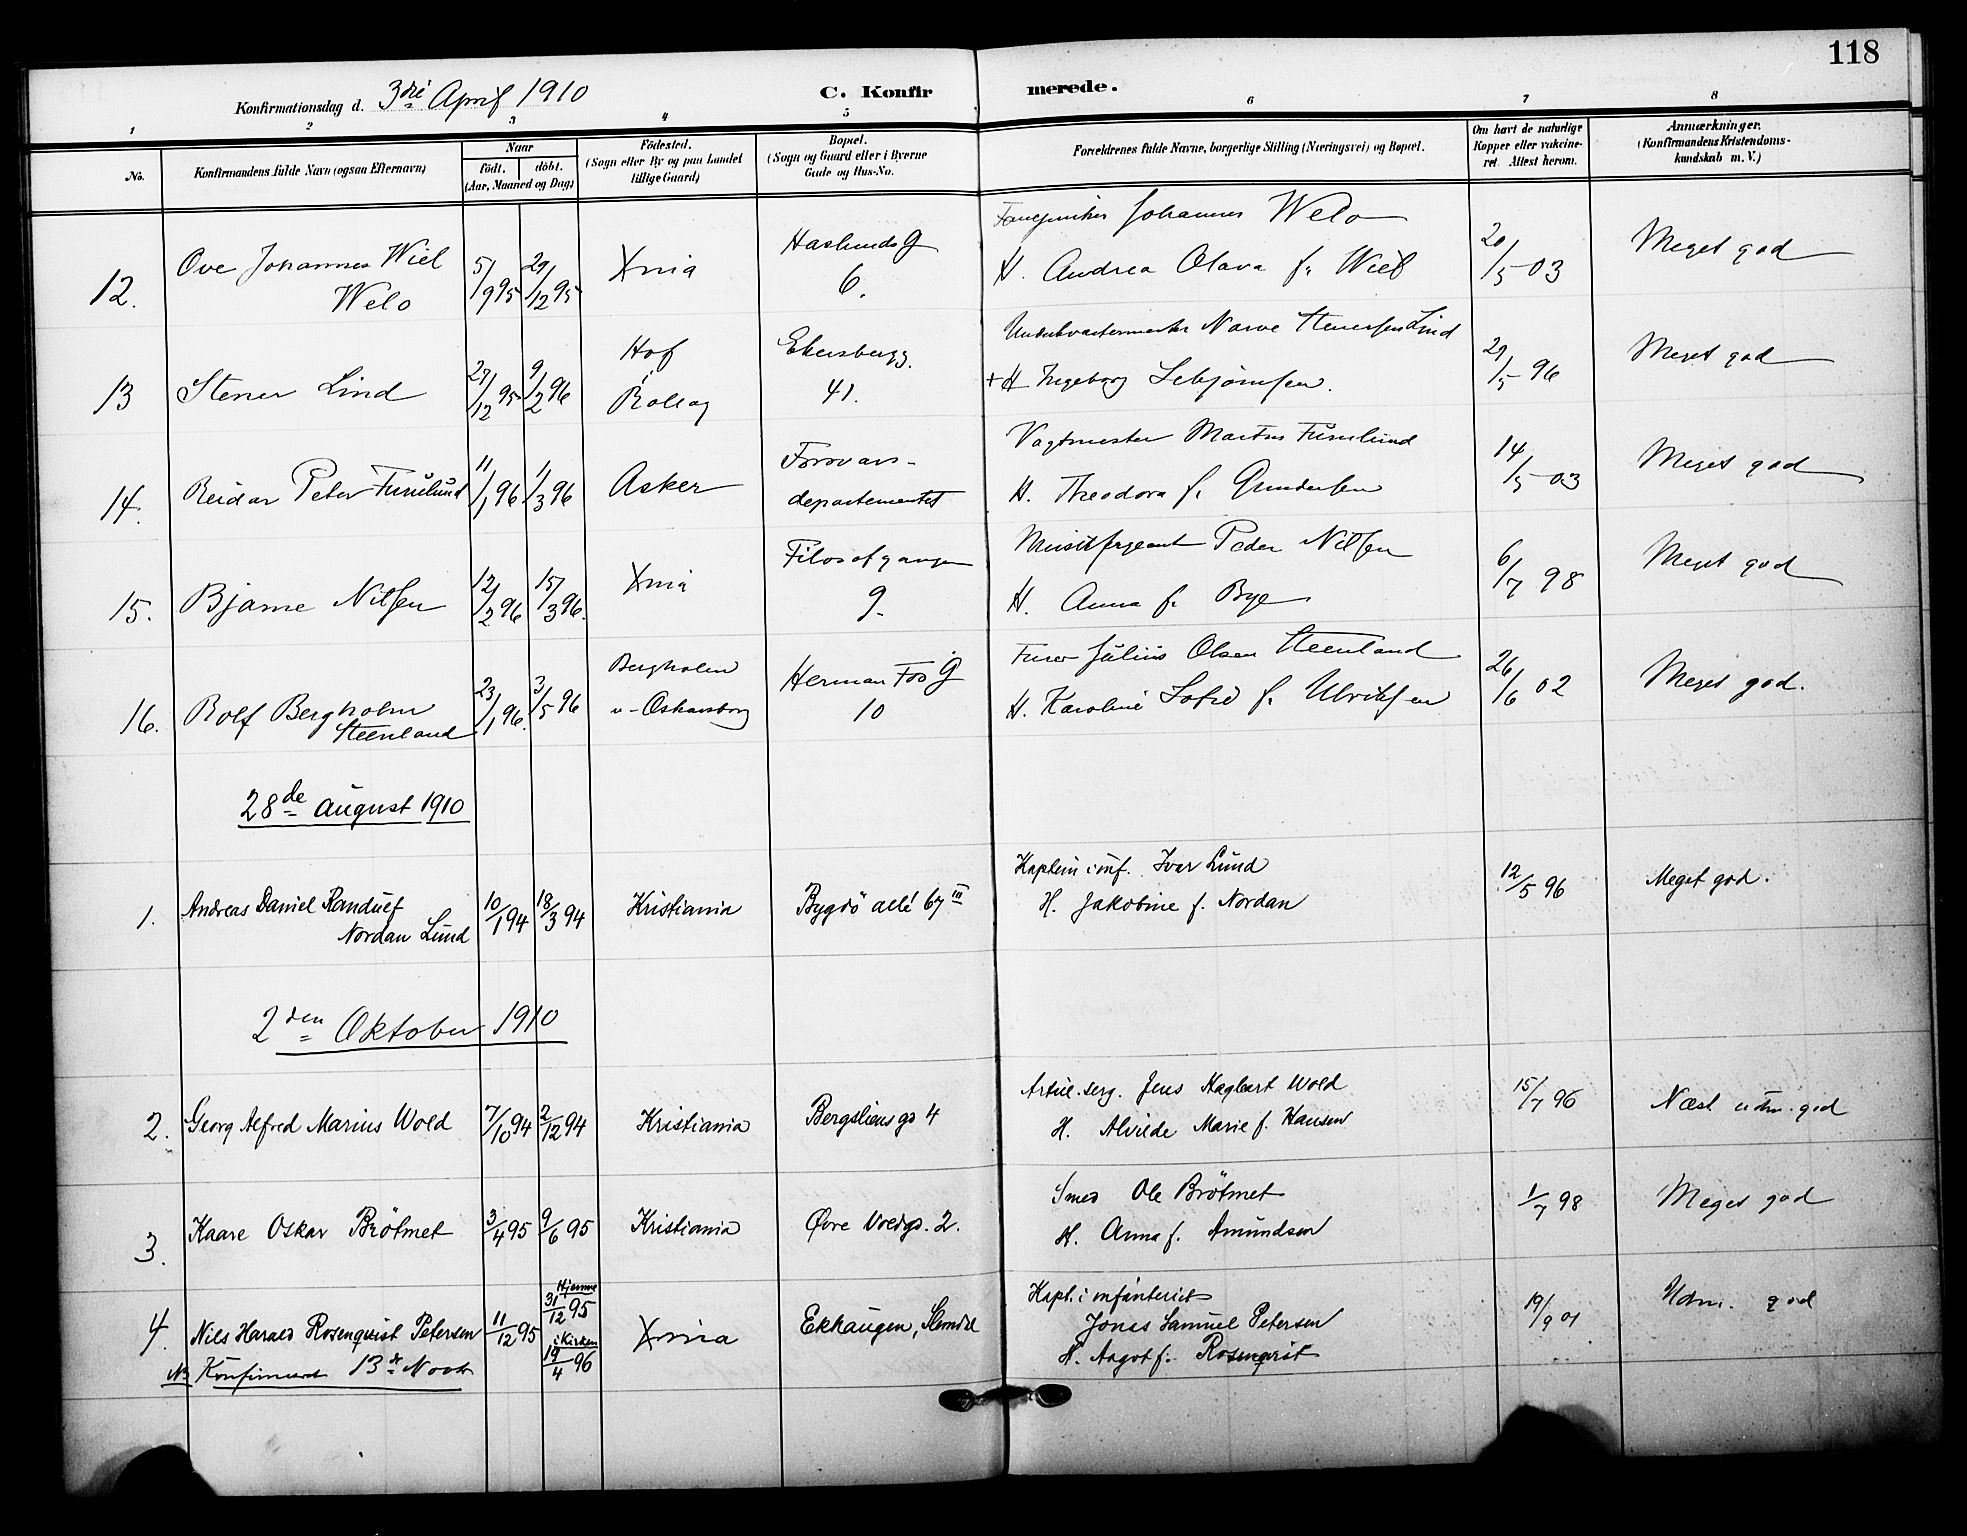 118
Konfirmationsdag d. 3die April 1910
C. Konfirmerede.
1 2 3 4 5 6 7 8
No.
Konfirmandens fulde Navn (ogsaa Efternavn)
Naar
født. døbt.
(Aar, Maaned og Dag)
Fødested.
(Sogn eller By og paa Landet
tillige Gaard)
Bopæl.
(Sogn og Gaard eller i Byerne
Gade og Hus-No.
Forældrenes fulde Navne, borgerlige Stilling (Næringsvei) og Bopæl.
Om havt de naturlige
Kopper eller vakcine-
ret. Attest herom.
Anmærkninger.
(Konfirmandens Kristendoms-
kundskab m. V.)
12. Ove Johannes Wiel
Welo
5/9 95
29/12 95
Xnia
Haslunds G
6.
Johannes Welo
H. Andrea Olava f. Wiel
20/5 03
Meget god
13 Stener Lind
27/12 95
9/2 96
Hof
i
Rollag
Ekersbergg.
41.
Underkvartermester Narve Stenersen Lind
+ H Ingeborg
29/5 96
Meget god
14. Reidar Peter Furulund
11/1 96
1/3 96
Asker
Forsvars-
departementet
Vagtmester Martin Furulund
H. Theodora f. Gundersen
14/5 03
Meget god
15. Bjarne Nilsen
12/2 96
15/3 96.
Xnia
Filosofgangen
9.
Musiksergeant Peder Nilsen
H. Anna f. Bye
6/7 98
Meget god
16. Rolf Bergholm
Steenland
23/1 96.
3/5 96
Bergholm
v. Oskarsborg
Herman Fos G
10
Furer Julius Olsen Steenland
H. Karoline Sofie f. Ulriksen
26/6 02
Meget god.
28de august 1910
1. Andreas Daniel Randulf
Nordan Lund
10/1 94
18/3 94
Kristiania
Bygdö allé 67 III
Kaptein i inf. Ivar Lund
H. Jakobine f. Nordan
12/5 96
Meget god.
2den Oktober 1910
2. Georg Alfred Marius Wold
7/10 94
2/12 94
Kristiania
Bergsliens gd 4
Artill. serg. Jens Hagbart Wold
H. Alvilde Marie f. Hansen
15/7 96
Næst udm. god
3. Kaare Oskar Brötmet
3/4 95
9/6 95
Kristiania
Øvre Voldgd. 2.
Smed Ole Brötmet
H. Anna f. Amundsen
1/7 98
Meget god
4. Nils Harald Rosenqvist Petersen
11/12 95
Hjemme
31/12 95
i Kirken
19/4 96
Xnia
Ekhaugen, Slemdal
Kapt. i infanteriet
Jonas Samuel Petersen
H. Aagot f. Rosenqvist
19/9 01
Udm. god
NB Konfirmeret 13de Novbr